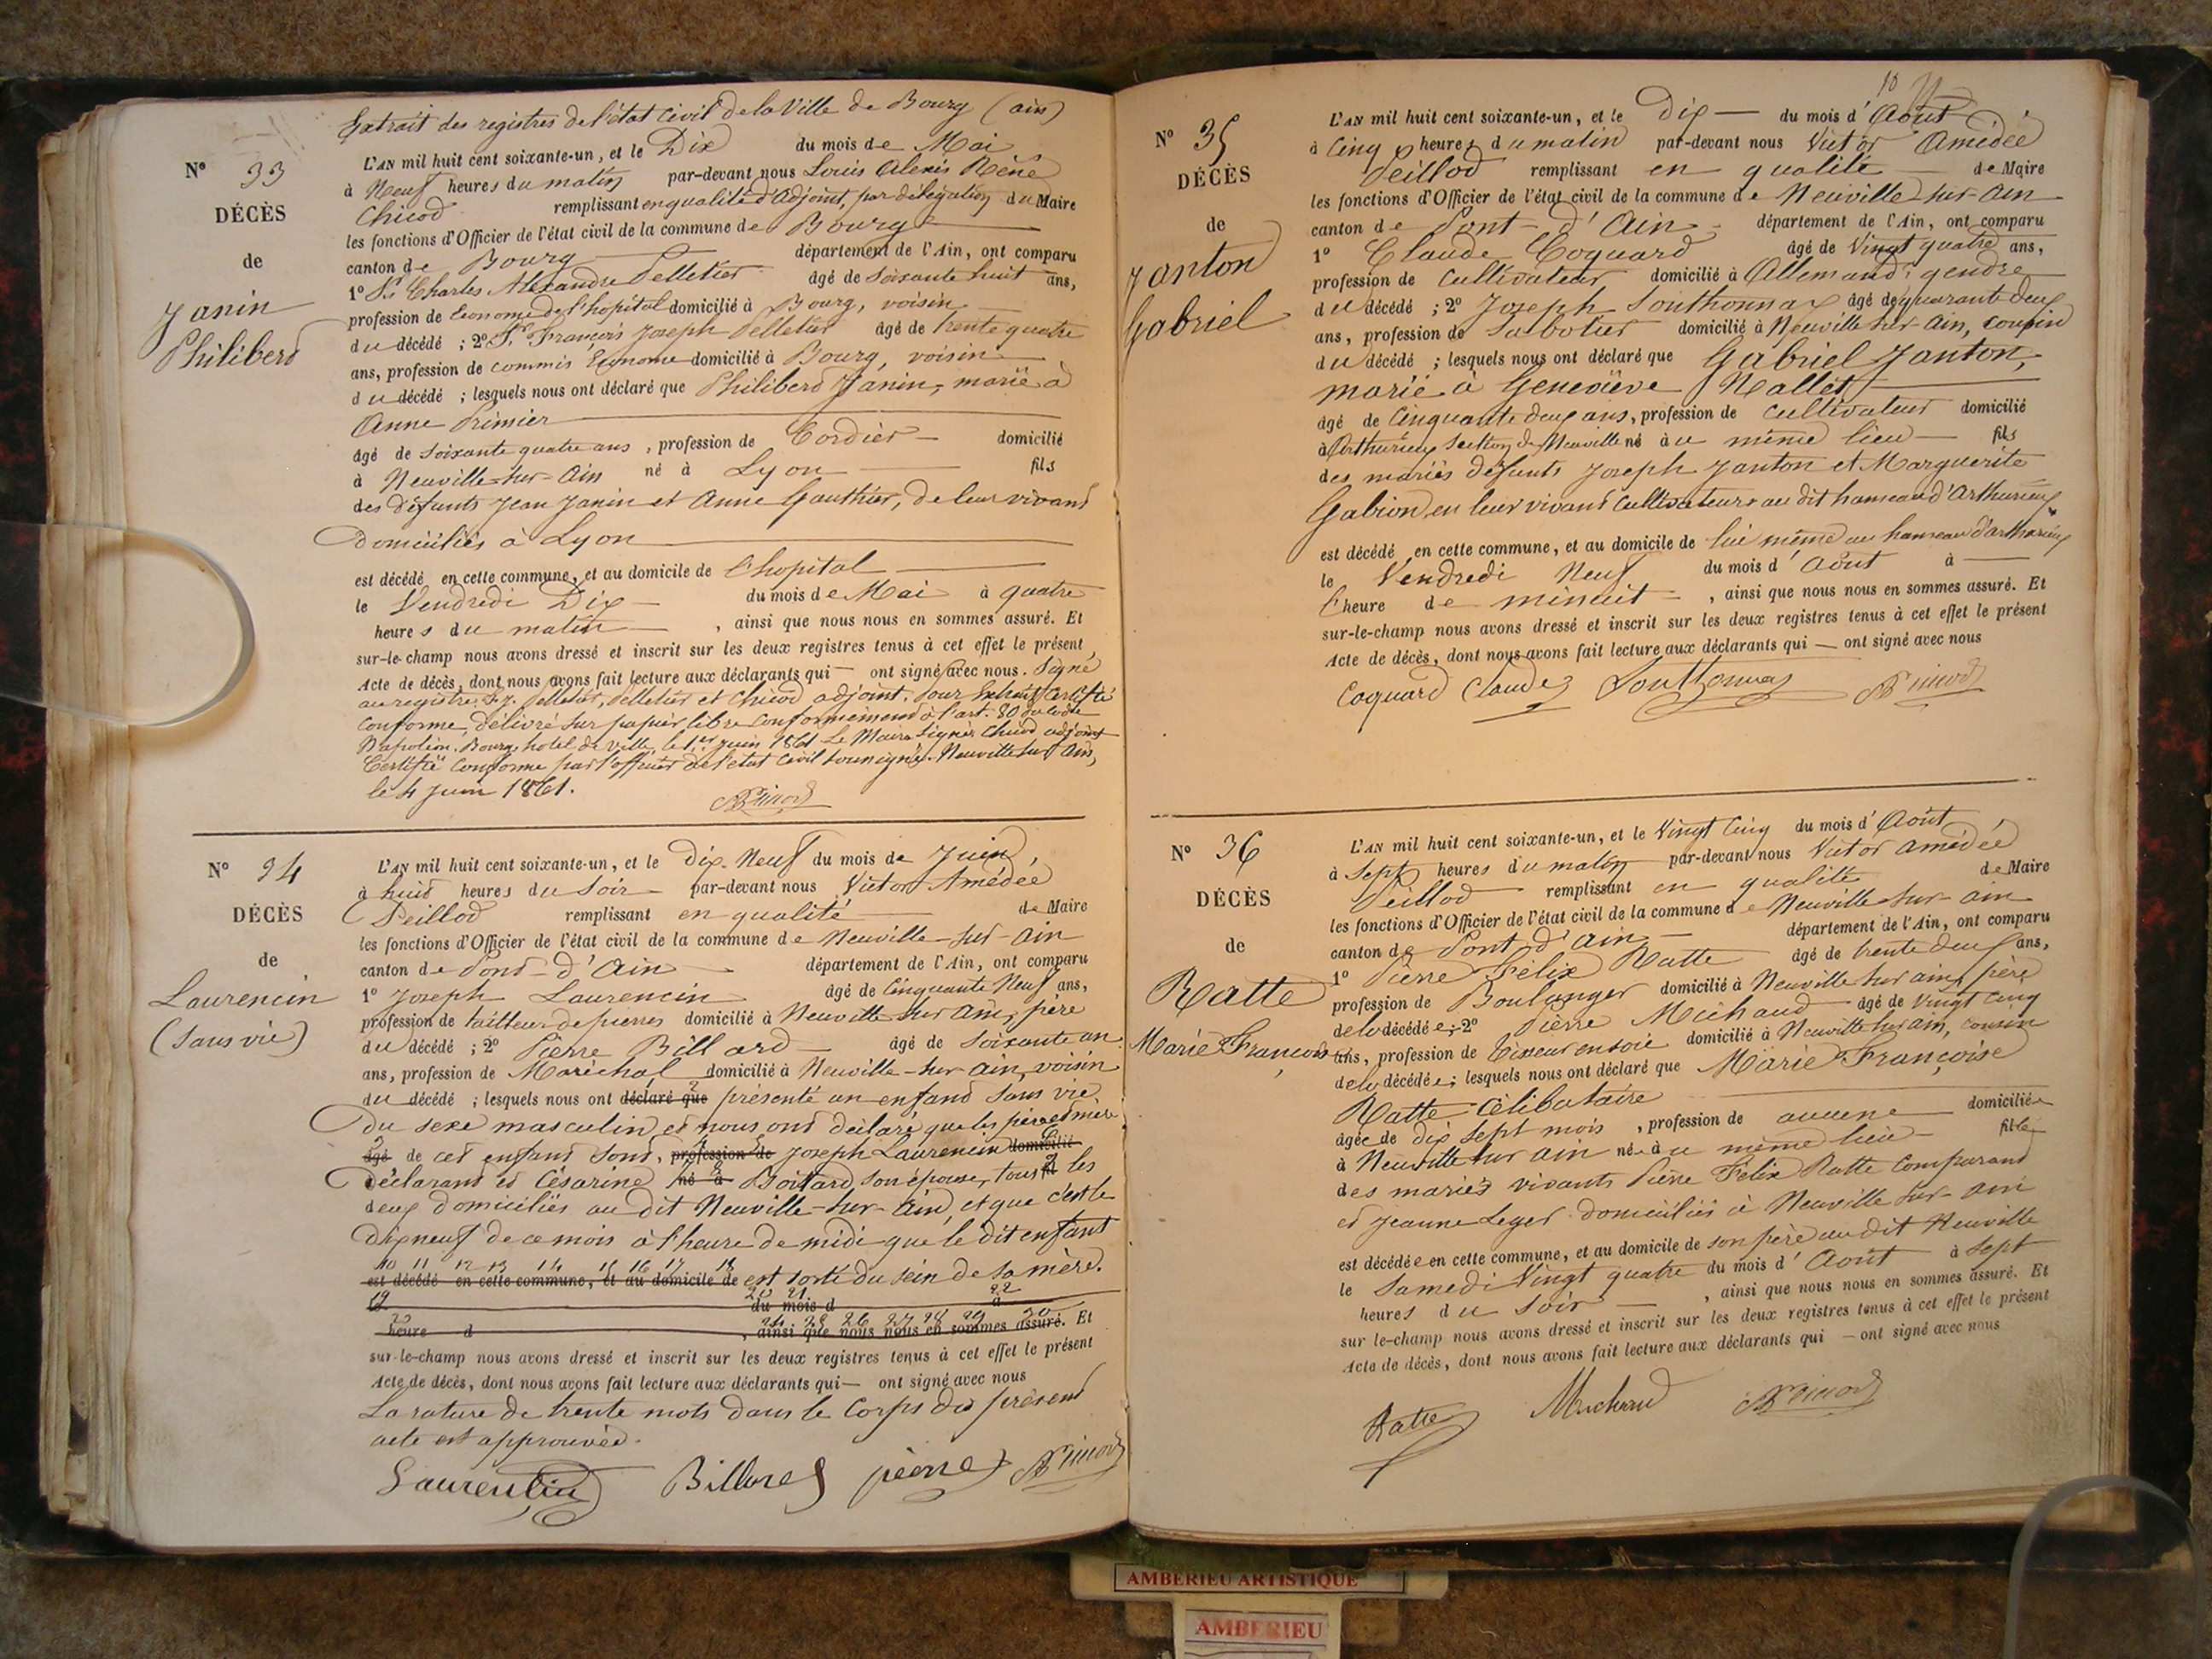 Extrait des registres de l'état civil de la Ville de Bourg (ain)
N° 33
DÉCÈS
de
Janin
Philiberd
L'AN mil huit cent soixante-un, et le Dix du mois de Mai
à Neuf heures du matin par-devant nous Louis Alexis Réné
Chicod remplissant en qualité d'Adjoint, par délégation du Maire
les fonctions d'Officier de l'état civil de la commune de Bourg
canton de Bourg département de l'Ain, ont comparu
1° Sr Charles Alexandre Pelletier âgé de soixante huit ans,
profession de Econome de l'hopital domicilié à Bourg, voisin
du décédé ; 2° Sr François Joseph Pelletier âgé de trente quatre
ans, profession de commis Econome domicilié à Bourg, voisin
du décédé ; lesquels nous ont déclaré que Philiberd Janin, marié à
Anne Primier
âgé de soixante quatre ans, profession de Cordier domicilié
à Neuville-sur-Ain né à Lyon fils
des défunts Jean Janin et Anne Gauthier, de leur vivant
Domiciliés à Lyon
est décédé en cette commune, et au domicile de l'hopital
le Vendredi Dix du mois de Mai à quatre
heures du matin, ainsi que nous nous en sommes assuré. Et
sur-le-champ nous avons dressé et inscrit sur les deux registres tenus à cet effet le présent
Acte de décès, dont nous avons fait lecture aux déclarants qui — ont signé avec nous. Signé
au registre, Pelletier, Pelletier et Chicod adjoint. Pour Extrait certifié
conforme, délivré sur papier libre conformément à l'art. 80 du code
Napoléon. Bourg, hotel de ville, le 1er juin 1861 Le Maire Signé Chicod adjoint
Certifié conforme par l'officier de l'état civil soussigné. Neuville sur Ain,
le 4 Juin 1861.
N° 34
DÉCÈS
de
Laurencin
(Sans vie)
L'AN mil huit cent soixante-un, et le Dix-Neuf du mois de Juin
à huit heures du soir par-devant nous Victor Amédée
Peillod remplissant en qualité de Maire
les fonctions d'Officier de l'état civil de la commune de Neuville-sur-Ain
canton de Pont-d'Ain département de l'Ain, ont comparu
1° Joseph Laurencin âgé de Cinquante Neuf ans,
profession de tailleur de pierres domicilié à Neuville-sur Ain, père
du décédé ; 2° Pierre Billard âgé de soixante un
ans, profession de Maréchal domicilié à Neuville-sur-Ain, voisin
du décédé ; lesquels nous ont déclaré que présenté un enfant sans vie
Du sexe masculin et nous ont déclaré que les père et mère
âgé de cet enfant sont, profession de Joseph Laurencin domicilié
Déclarant et Césarine né à Boitard son épouse, tous fil les
deux domiciliés au dit Neuville-sur-Ain, et que c'est le
Dix neuf de ce mois à l'heure de midi que le dit enfant
10 11 12 13 14 15 16 17 18
est décédé en cette commune, et au domicile de est sorti du sein de sa mère.
20 21 22
le du mois d à
23 24 25 26 27 28 29 30
heure d , ainsi que nous nous en sommes assuré. Et
sur-le-champ nous avons dressé et inscrit sur les deux registres tenus à cet effet le présent
Acte de décès, dont nous avons fait lecture aux déclarants qui — ont signé avec nous
La rature de trente mots dans le Corps du présent
acte est approuvée.
Laurentin Billard pierre
10
N° 35
DÉCÈS
de
Janton
Gabriel
L'AN mil huit cent soixante-un, et le Dix du mois d'Août
à Cinq heures du matin par-devant nous Victor Amédée
Peillod remplissant en qualité de Maire
les fonctions d'Officier de l'état civil de la commune de Neuville-sur-Ain
canton de Pont-d'Ain département de l'Ain, ont comparu
1° Claude Coquard âgé de Vingt quatre ans,
profession de Cultivateur domicilié à Allemand, gendre
du décédé ; 2° Joseph Southonnax âgé de quarante deux
ans, profession de Sabotier domicilié à Neuville sur-Ain, cousin
du décédé ; lesquels nous ont déclaré que Gabriel Janton,
marié à Geneviève Nallet
âgé de Cinquante deux ans, profession de cultivateur domicilié
à Arthurieux Section de Neuville né au même lieu fils
des mariés défunts Joseph Janton et Marguerite
Gabion, en leur vivant Cultivateurs au dit hameau d'Arthurieux
est décédé en cette commune, et au domicile de lui même au hameau d'arthurieux
le Vendredi Neuf du mois d'Août à
l'heure de minuit, ainsi que nous nous en sommes assuré. Et
sur-le-champ nous avons dressé et inscrit sur les deux registres tenus à cet effet le présent
Acte de décès, dont nous avons fait lecture aux déclarants qui — ont signé avec nous
Coquard Claude Southonnax
N° 36
DÉCÈS
de
Ratte
Marie Françoise
L'AN mil huit cent soixante-un, et le Vingt Cinq du mois d'Août
à Sept heures du matin par-devant nous Victor Amédée
Peillod remplissant en qualité de Maire
les fonctions d'Officier de l'état civil de la commune de Neuville-sur-Ain
canton de Pont-d'Ain département de l'Ain, ont comparu
1° Pierre Félix Ratte âgé de trente deux ans,
profession de Boulanger domicilié à Neuville sur ain, père
de la décédée ; 2° Pierre Michaud âgé de Vingt Cinq
ans, profession de tisseur en soie domicilié à Neuville sur ain, cousin
de la décédée ; lesquels nous ont déclaré que Marie Françoise
Ratte Célibataire
âgée de dix sept mois, profession de aucune domiciliée
à Neuville sur ain née au même lieu fille
des mariés vivants Pierre Félix Ratte comparant
et Jeanne Leger domiciliés à Neuville sur-ain
est décédée en cette commune, et au domicile de son père au dit Neuville
le Samedi Vingt quatre du mois d'Août à Sept
heures du soir, ainsi que nous nous en sommes assuré. Et
sur le-champ nous avons dressé et inscrit sur les deux registres tenus à cet effet le présent
Acte de décès, dont nous avons fait lecture aux déclarants qui — ont signé avec nous
Ratte Michaud
AMBERIEU ARTISTIQUE
AMBERIEU